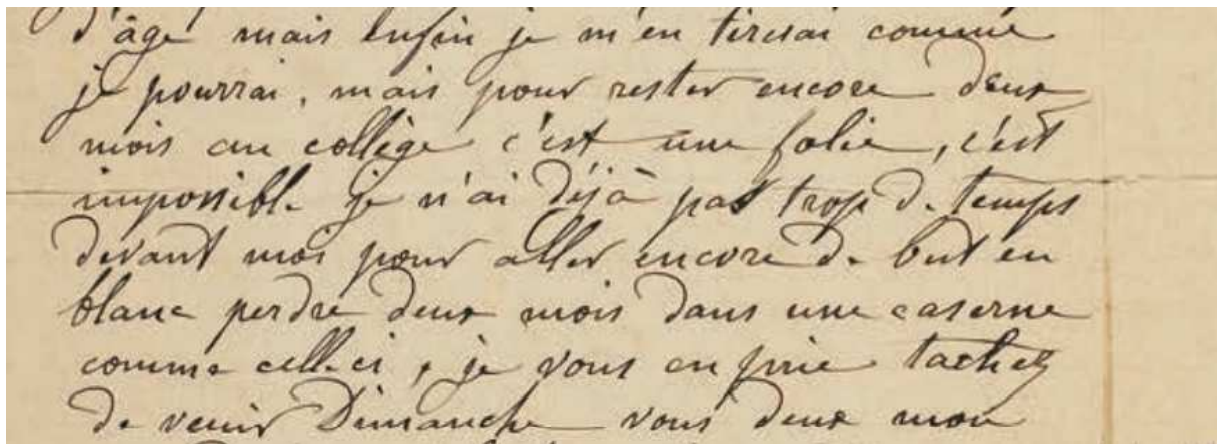 d'âge mais enfin je m'en tirerai comme
je pourrai, mais pour rester encore deux
mois au collège c'est une folie, c'est
impossible je n'ai déjà pas trop de temps
devant moi pour aller encore de but en
blanc perdre deux mois dans une caserne
comme celle ci, je vous en prie tachez
de venir Dimanche vous deux mon